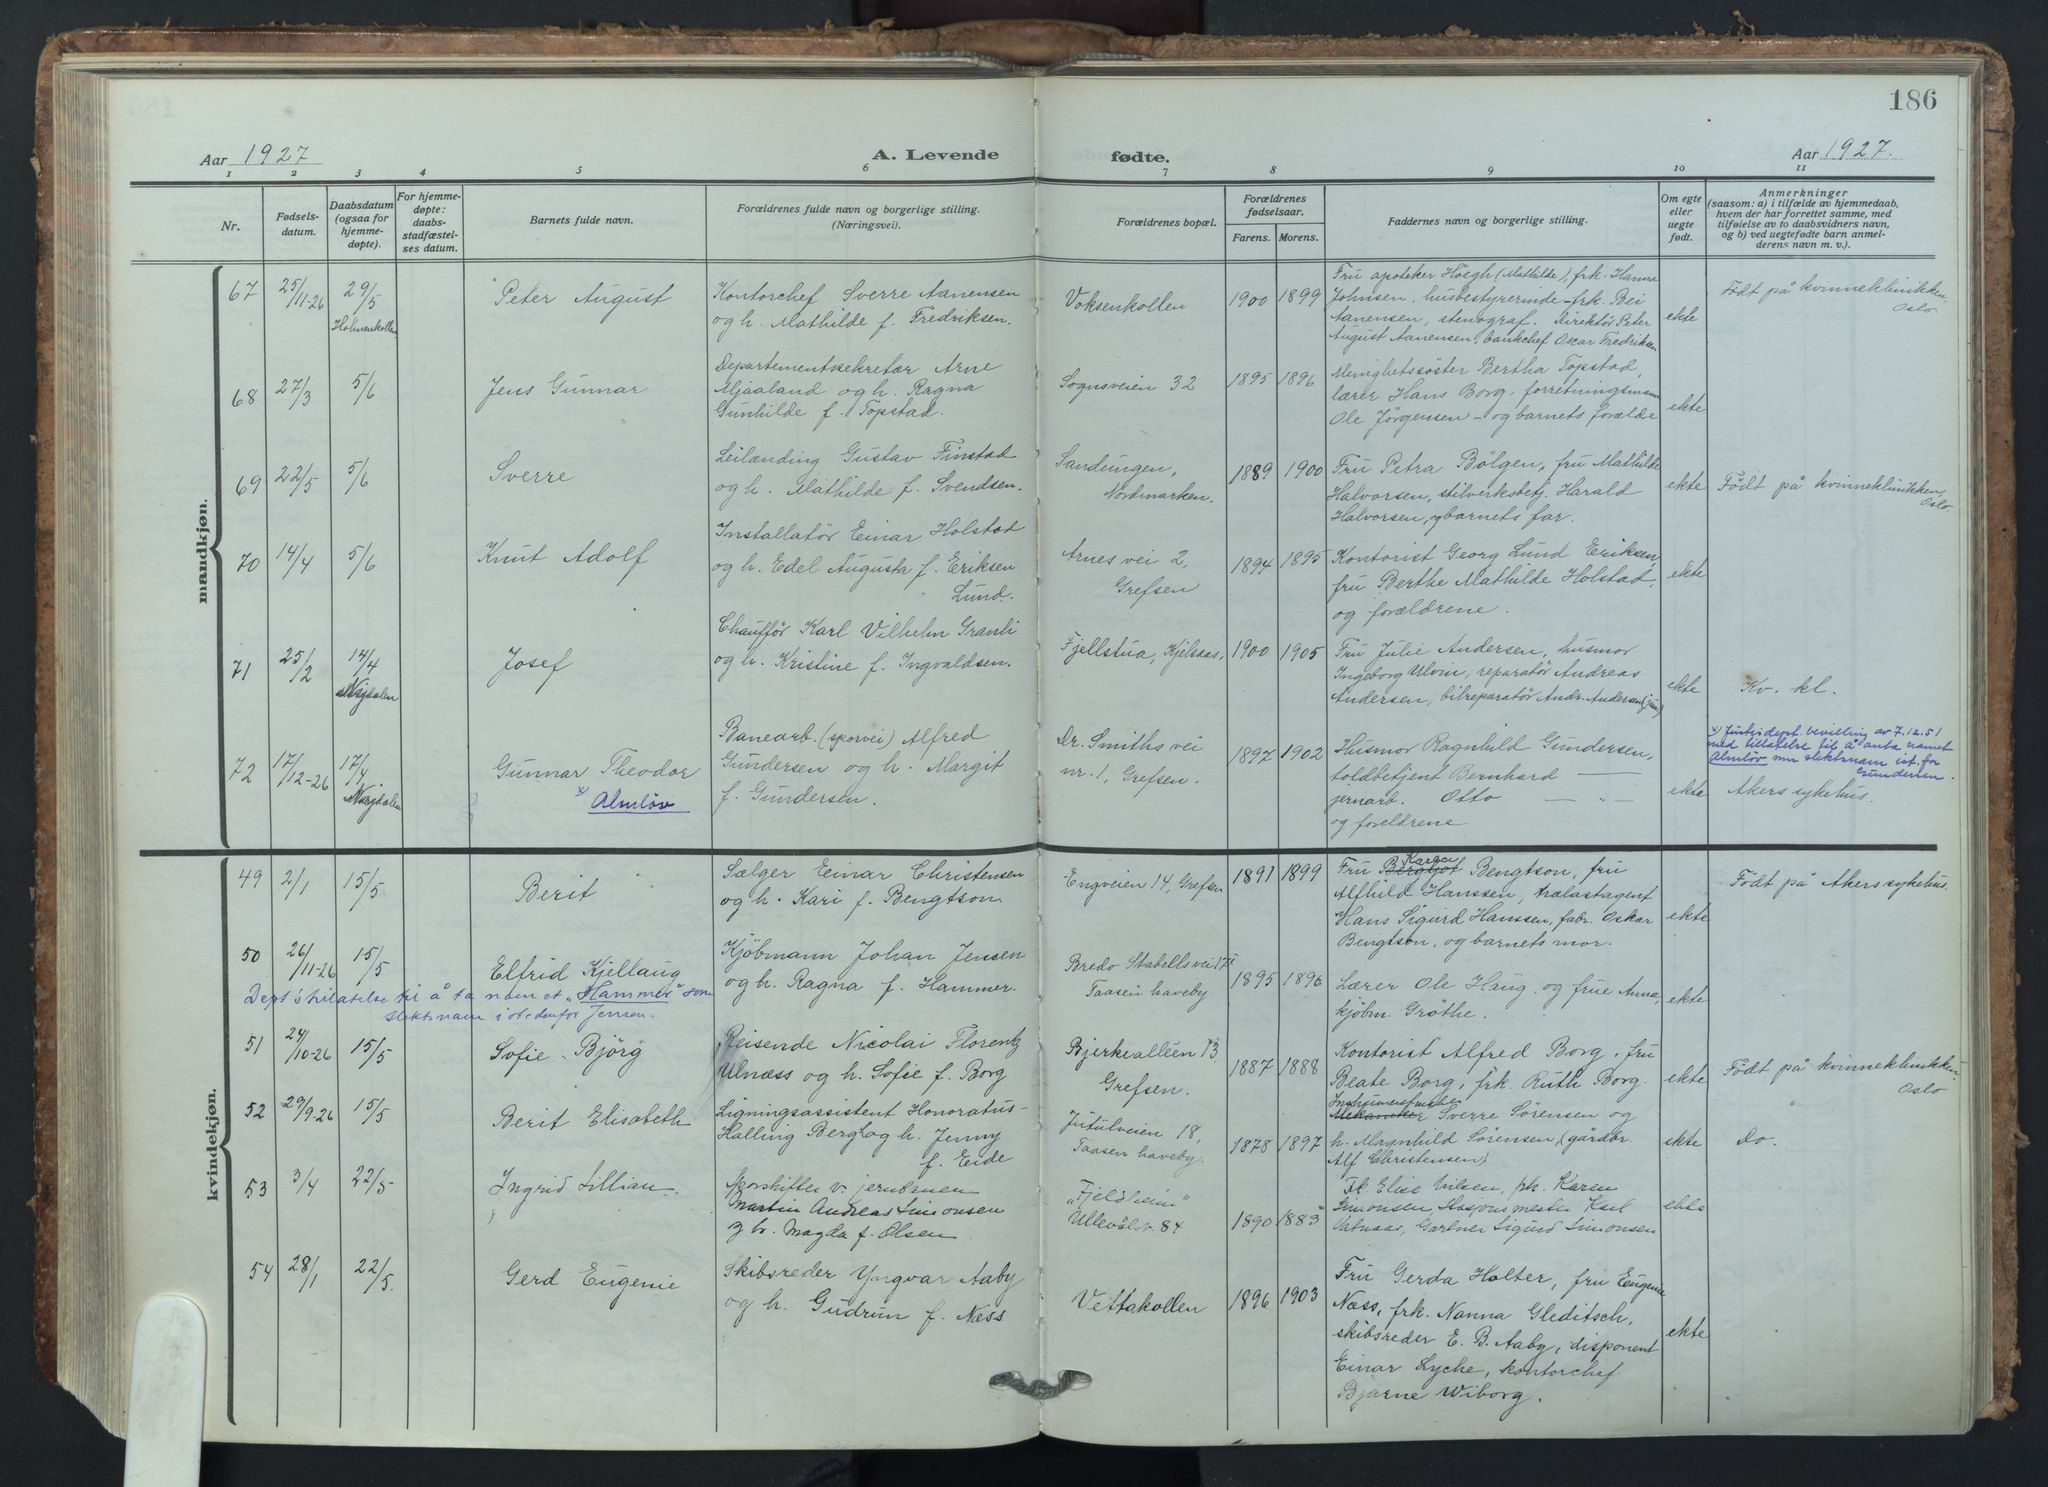 186
Aar 1927
A. Levende fødte.
Aar 1927.
1 2 3 4 5 6 7 8 9 10 11
Nr.
Fødsels-
datum.
Daabsdatum
(ogsaa for
hjemme-
døpte).
For hjemme-
døpte:
daabs-
stadfæstel-
ses datum.
Barnets fulde navn.
Forældrenes fulde navn og borgerlige stilling.
(Næringsvei).
Forældrenes bopæl.
Forældrenes
fødselsaar.
Farens. Morens.
Faddernes navn og borgerlige stilling.
Om egte
eller
uegte
født.
Anmerkninger
(saasom: a) i tilfælde av hjemmedaab,
hvem der har forrettet samme, med
tilføielse av to daabsvidners navn,
og b) ved uegtefødte barn anmel-
derens navn m. v.).
mandkjøn.
67 25/11-26 29/5 Holmenkollen
Peter August
Kontorchef Sverre Aanensen
og h. Mathilde f. Fredriksen.
Voksenkollen
1900 1899
Fru apoteker Höegh (Mathilde), frk. Hanna
Johnsen, husbestyrerinde - frk. Bei
Aanensen, stenograf. Direktör Peter
August Aanensen, bankchef Oscar Fredriksen
ekte
Födt på kvinneklinikken,
Oslo.
68 27/3 5/6
Jens Gunnar
Departementssekretær Arne
Mjaaland og h. Ragna
Gunhilde f. Topstad.
Sognsveien 32
1895 1896
Menighetssöster Bertha Topstad,
lærer Hans Borg, forretningsmann
Ole Jörgensen - og barnets forælde
ekte
69 22/5 5/6
Sverre
Leilænding Gustav Finstad
og h. Mathilde f. Svendsen.
Sandungen,
Nordmarken.
1889 1900
Fru Petra Bölgen, fru Mathilde
Halvorsen, stilverksbetj. Harald
Halvorsen, og barnets far.
ekte
Födt på kvinneklinikken,
Oslo.
70 14/4 5/6
Knut Adolf
Installatör Einar Holstad
og h. Edel Augusta f. Eriksen
Lund.
Arnes vei 2,
Grefsen
1894 1895
Kontorist Georg Lund Eriksen,
fru Berthe Mathilde Holstad,
og forældrene.
ekte
71 25/2 14/4
Josef
Chauffør Karl Vilhelm Granli
og h. Kristine f. Ingvaldsen.
Fjellstua, Kjelsaas,
1900 1905
Fru Julie Andersen, husmor
Ingeborg Ulvin, reparatör Andreas
Andersen, bilreparatör Andr. Andersen (jun)
ekte
Kv. kl.
72 17/12-26 17/4
Gunnar Theodor
x) Almlöv
Banearb. (sporvei) Alfred
Gundersen og h. Margit
f. Gundersen.
Dr. Smiths vei
nr. 1, Grefsen.
1897 1902
Husmor Ragnhild Gundersen,
toldbetjent Bernhard —
jernarb. Otto — " —
og foreldrene
ekte
x) Justisdept. bevilling av 7.12.51
med tillatelse til å anta navnet
Almlöv som slektsnavn ist. for
Gundersen.
Akers sykehus.
kvindekjøn.
49 2/1 15/5
Berit
Sælger Einar Christensen
og h. Kari f. Bengtson.
Engveien 14, Grefsen
1891 1899
Fru Bergljot Karen Bengtson, fru
Alfhild Hanssen, trælastagent
Hans Sigurd Hanssen, fabr. Oskar
Bengtson, og barnets mor.
ekte
Födt på Akers sykehus.
50 26/11-26 15/5
Elfrid Kjellaug
Kjöbmann Johan Jensen
og h. Ragna f. Hammer.
Dept's tilatelse til å ta navnet "Hammer" som
slektsnavn istedenfor Jensen.
Bredo Stabells vei 17
Taasen haveby
1895 1896
Lærer Ole Haug og frue Anna,
kjöbm. Gröthe.
ekte
51 24/10-26 15/5
Sofie Björg
Reisende Nicolai Florentz
Ulnæss og h. Sofie f. Borg
Bjerkealléen 13
Grefsen.
1887 1888
Kontorist Alfred Borg, fru
Beate Borg, frk. Ruth Borg.
ekte
Födt på kvinneklinikken,
Oslo
52 29/9-26 15/5
Berit Elisabeth
Ligningsassistent Honoratus
Halling Bergh og h. Jenny
f. Eide
Jutulveien 18,
Taasen haveby.
1878 1897
Mekaniker Sverre Sörensen og
h. Magnhild Sörensen, (gårdbr.
Alf Christensen)
ekte
Do.
53 3/4 22/5
Ingrid Lillian.
Sporskifter v. jernbanen
Martin Andreas Simonsen
og h. Magda f. Olsen
"Fjeldheim"
Ullevålsv. 84
1890 1883
Fr. Elise Nilsen, frk. Karen
Simonsen, Stasjonsmester Karl
Gartner Sigurd Simonsen
ekte
54 28/1 22/5.
Gerd Eugenie
Skibsreder Yngvar Aaby
og h. Gudrun f. Næss
Vettakollen
1896 1903
Fru Gerda Holter, fru Eugenie
Næss, frk. Nanna Gleditsch,
skibsreder E. B. Aaby, disponent
Einar Lyche, kontorchef
Bjarne Wiborg.
ekte